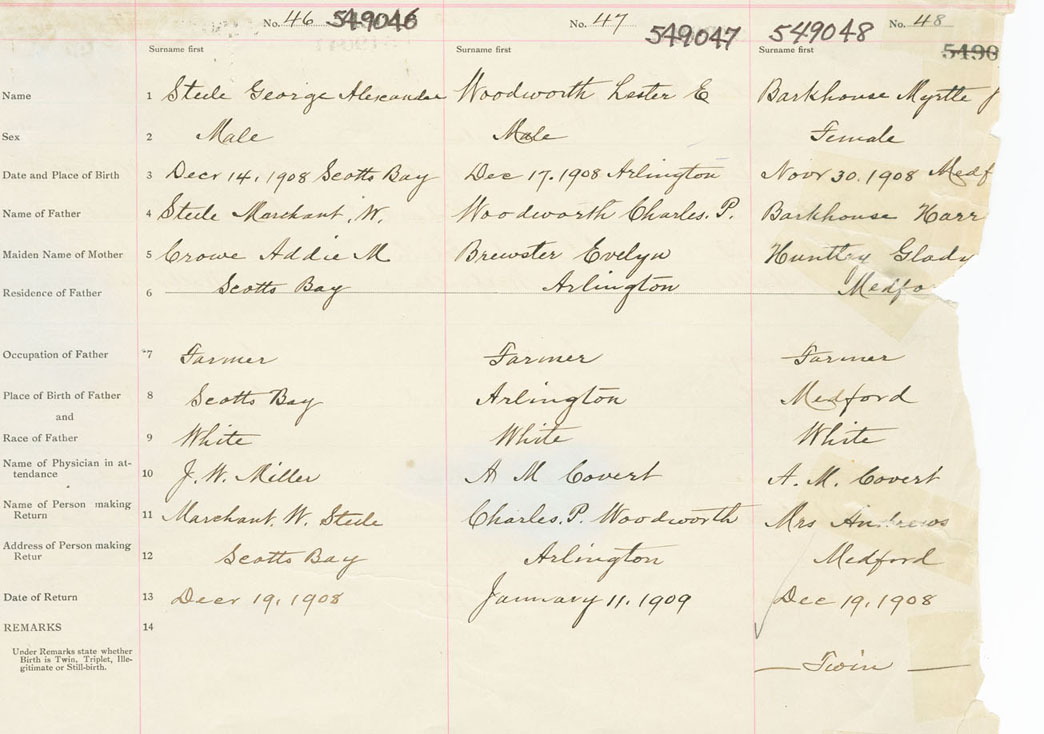 No. 46 549046 No. 47 549047 549048 No. 48
Surname first Surname first Surname first 5490
Name 1 Steele George Alexander Woodworth Lester E Barkhouse Myrtle
Sex 2 Male Male Female
Date and Place of Birth 3 Decr 14, 1908 Scotts Bay Dec 17. 1908 Arlington Novr 30. 1908 Medf
Name of Father 4 Steele Marchant. W. Woodworth Charles. P. Barkhouse Harr
Maiden Name of Mother 5 Crowe Addie M Brewster Evelyn Huntley Glady
Residence of Father 6 Scotts Bay Arlington Medfo
Occupation of Father 7 Farmer Farmer Farmer
Place of Birth of Father 8 Scotts Bay Arlington Medford
and
Race of Father 9 White White White
Name of Physician in at-
tendance 10 J. W. Miller A M Covert A. M. Covert
Name of Person making
Return 11 Marchant. W. Steele Charles. P. Woodworth Mrs Andrews
Address of Person making
Retur 12 Scotts Bay Arlington Medford
Date of Return 13 Decr 19, 1908 January 11. 1909 Dec 19, 1908
REMARKS 14
Under Remarks state whether
Birth is Twin, Triplet, Ille-
gitimate or Still-birth.
— Twin —